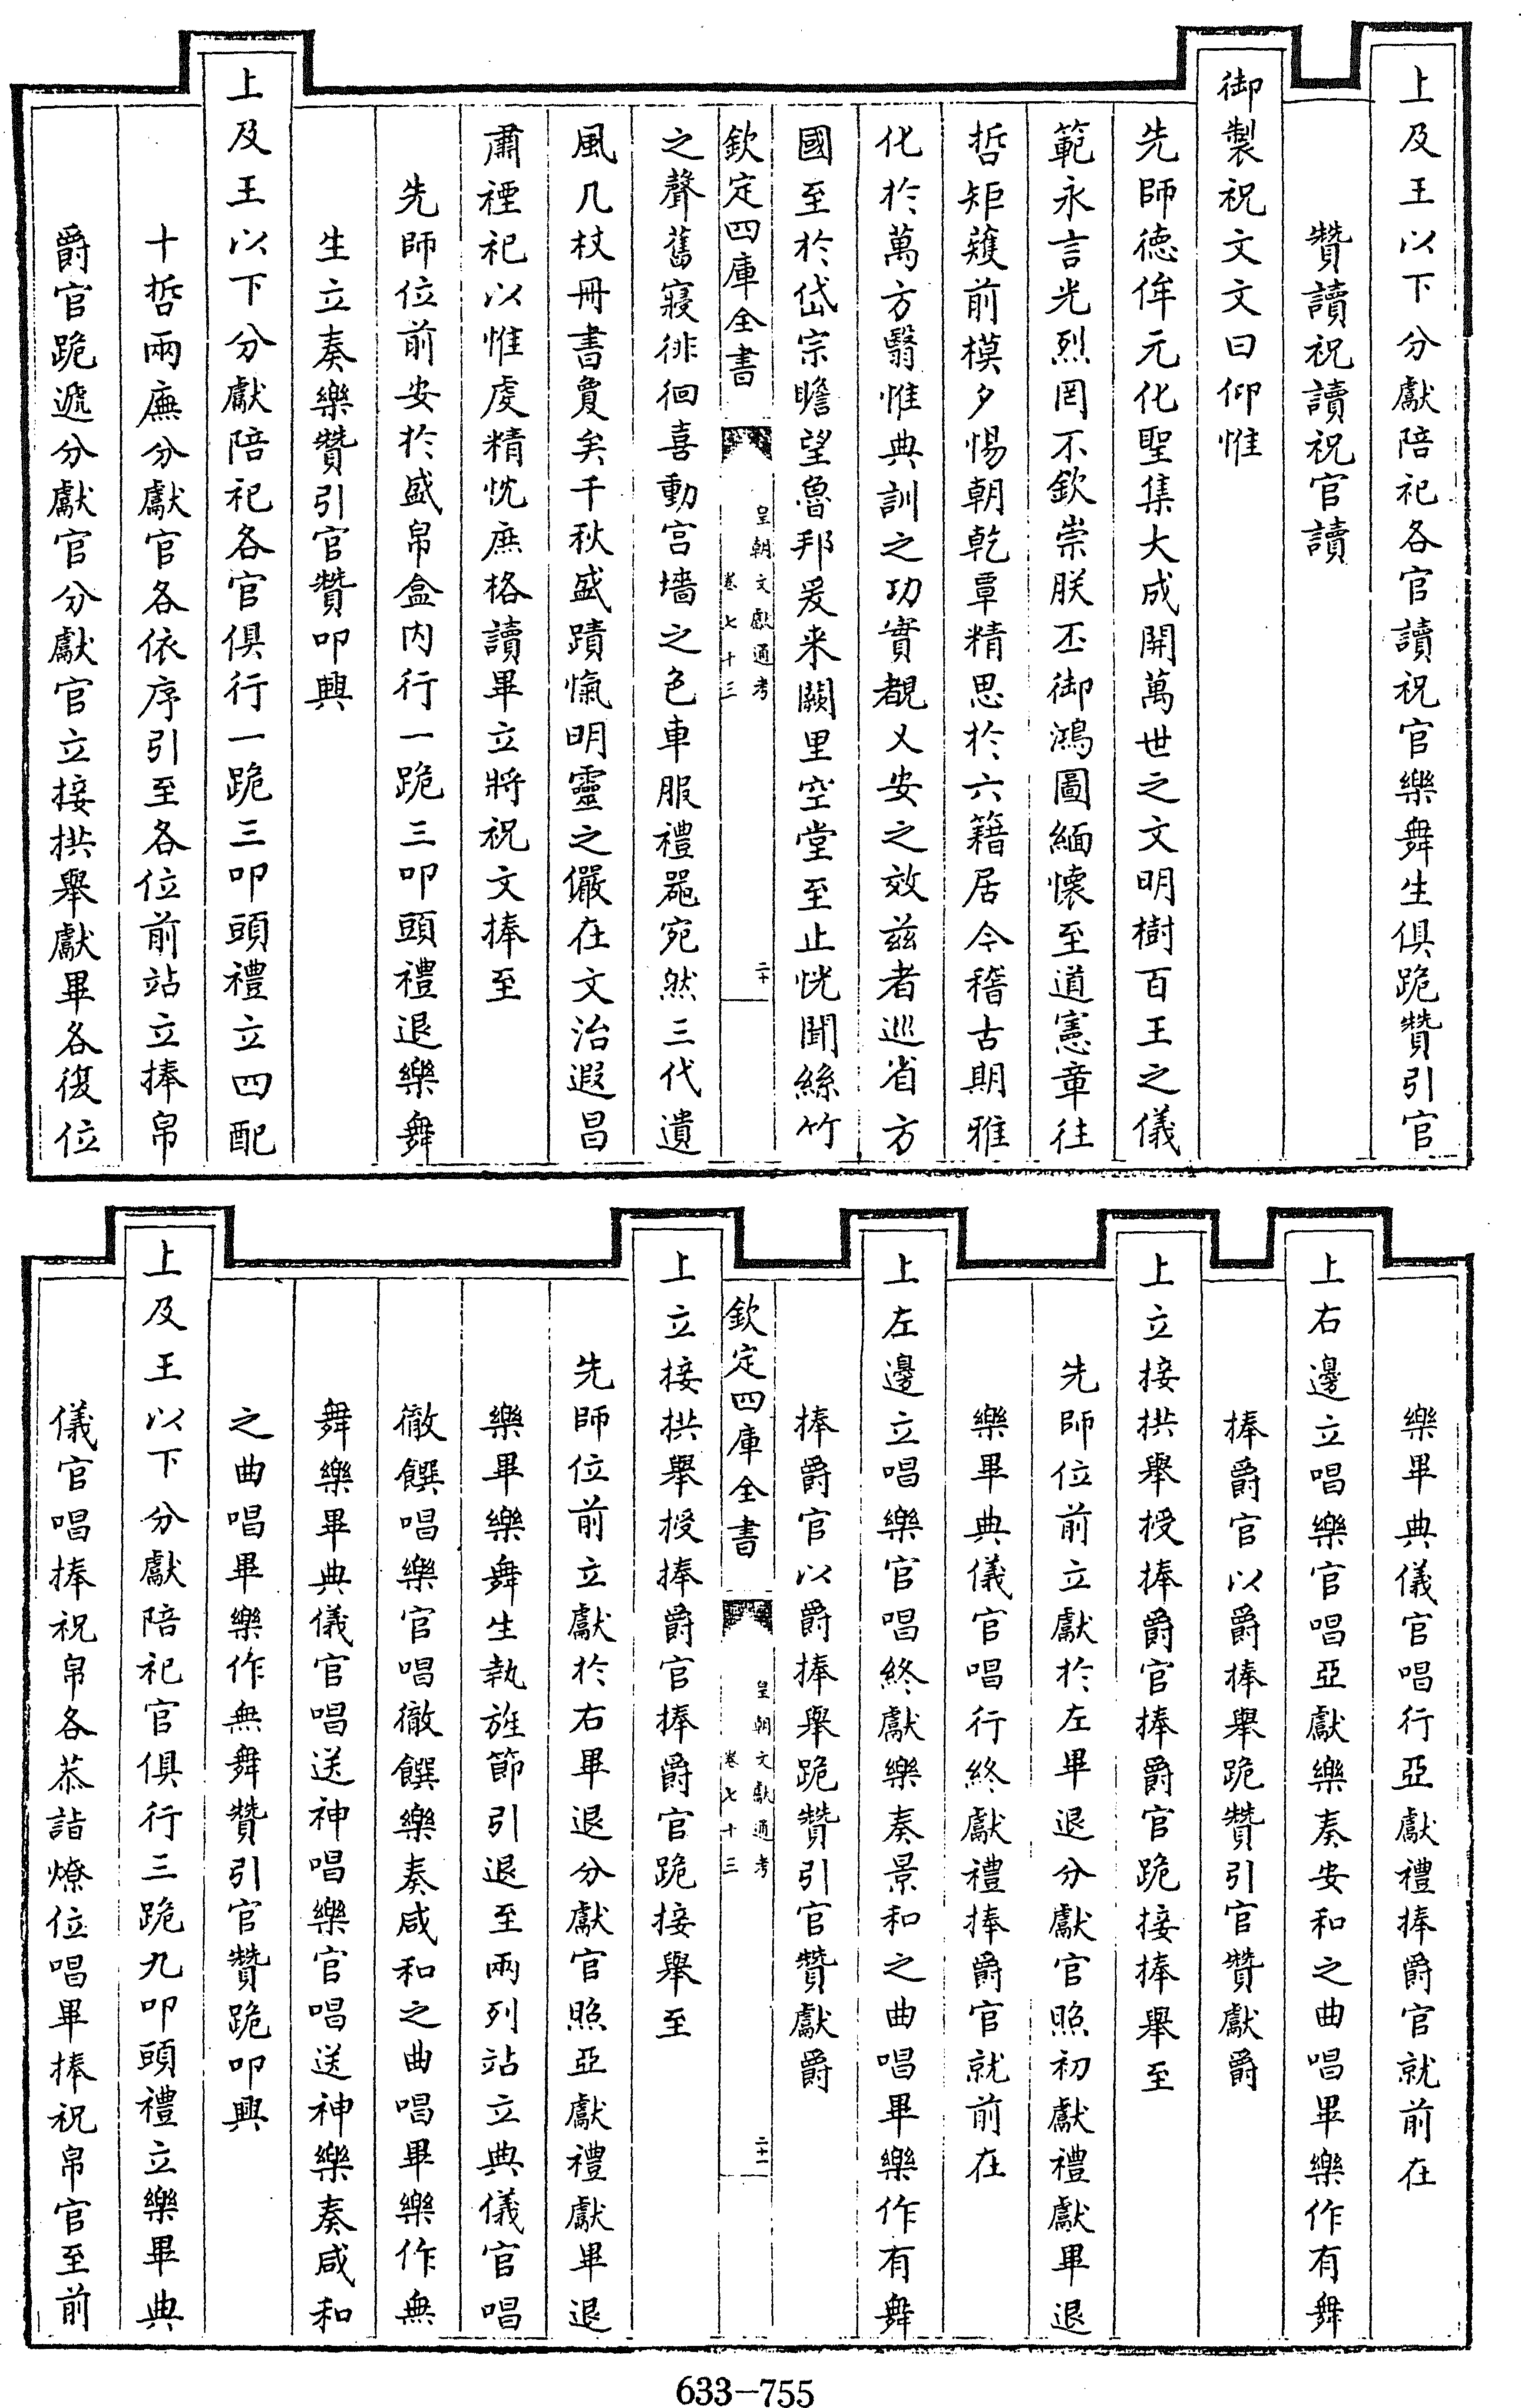 上及王以下分獻陪祀各官讀祝官樂舞生俱跪贊引官
贊讀祝讀祝官讀
御製祝文文曰仰惟
先師德侔元化聖集大成開萬世之文明樹百王之儀
範永言光烈罔不欽崇朕丕御鴻圖緬懷至道憲章往
哲矩矱前模夕惕朝乾覃精思於六籍居今稽古期雅
化於萬方翳惟典訓之功實覩乂安之效兹者巡省方
國至於岱宗瞻望魯邦爰来闕里空堂至止恍聞絲竹
欽定四庫全書
皇朝文獻通考
卷七十三
二十
之聲舊寢徘徊喜動宫墻之色車服禮噐宛然三代遺
風几杖冊書敻矣千秋盛蹟愾明靈之儼在文治遐昌
肅禋祀以惟虔精忱庶格讀畢立將祝文捧至
先師位前安於盛帛盒内行一跪三叩頭禮退樂舞
生立奏樂贊引官贊叩興
上及王以下分獻陪祀各官俱行一跪三叩頭禮立四配
十哲兩廡分獻官各依序引至各位前站立捧帛
爵官跪遞分獻官分獻官立接拱舉獻畢各復位
樂畢典儀官唱行亞獻禮捧爵官就前在
上右邊立唱樂官唱亞獻樂奏安和之曲唱畢樂作有舞
捧爵官以爵捧舉跪贊引官贊獻爵
上立接拱舉授捧爵官捧爵官跪接捧舉至
先師位前立獻於左畢退分獻官照初獻禮獻畢退
樂畢典儀官唱行終獻禮捧爵官就前在
上左邊立唱樂官唱終獻樂奏景和之曲唱畢樂作有舞
捧爵官以爵捧舉跪贊引官贊獻爵
欽定四庫全書
皇朝文獻通考
卷七十三
二十一
上立接拱舉授捧爵官捧爵官跪接舉至
先師位前立獻於右畢退分獻官照亞獻禮獻畢退
樂畢樂舞生執旌節引退至兩列站立典儀官唱
徹饌唱樂官唱徹饌樂奏咸和之曲唱畢樂作無
舞樂畢典儀官唱送神唱樂官唱送神樂奏咸和
之曲唱畢樂作無舞贊引官贊跪叩興
上及王以下分獻陪祀官俱行三跪九叩頭禮立樂畢典
儀官唱捧祝帛各恭詣燎位唱畢捧祝帛官至前
633-755